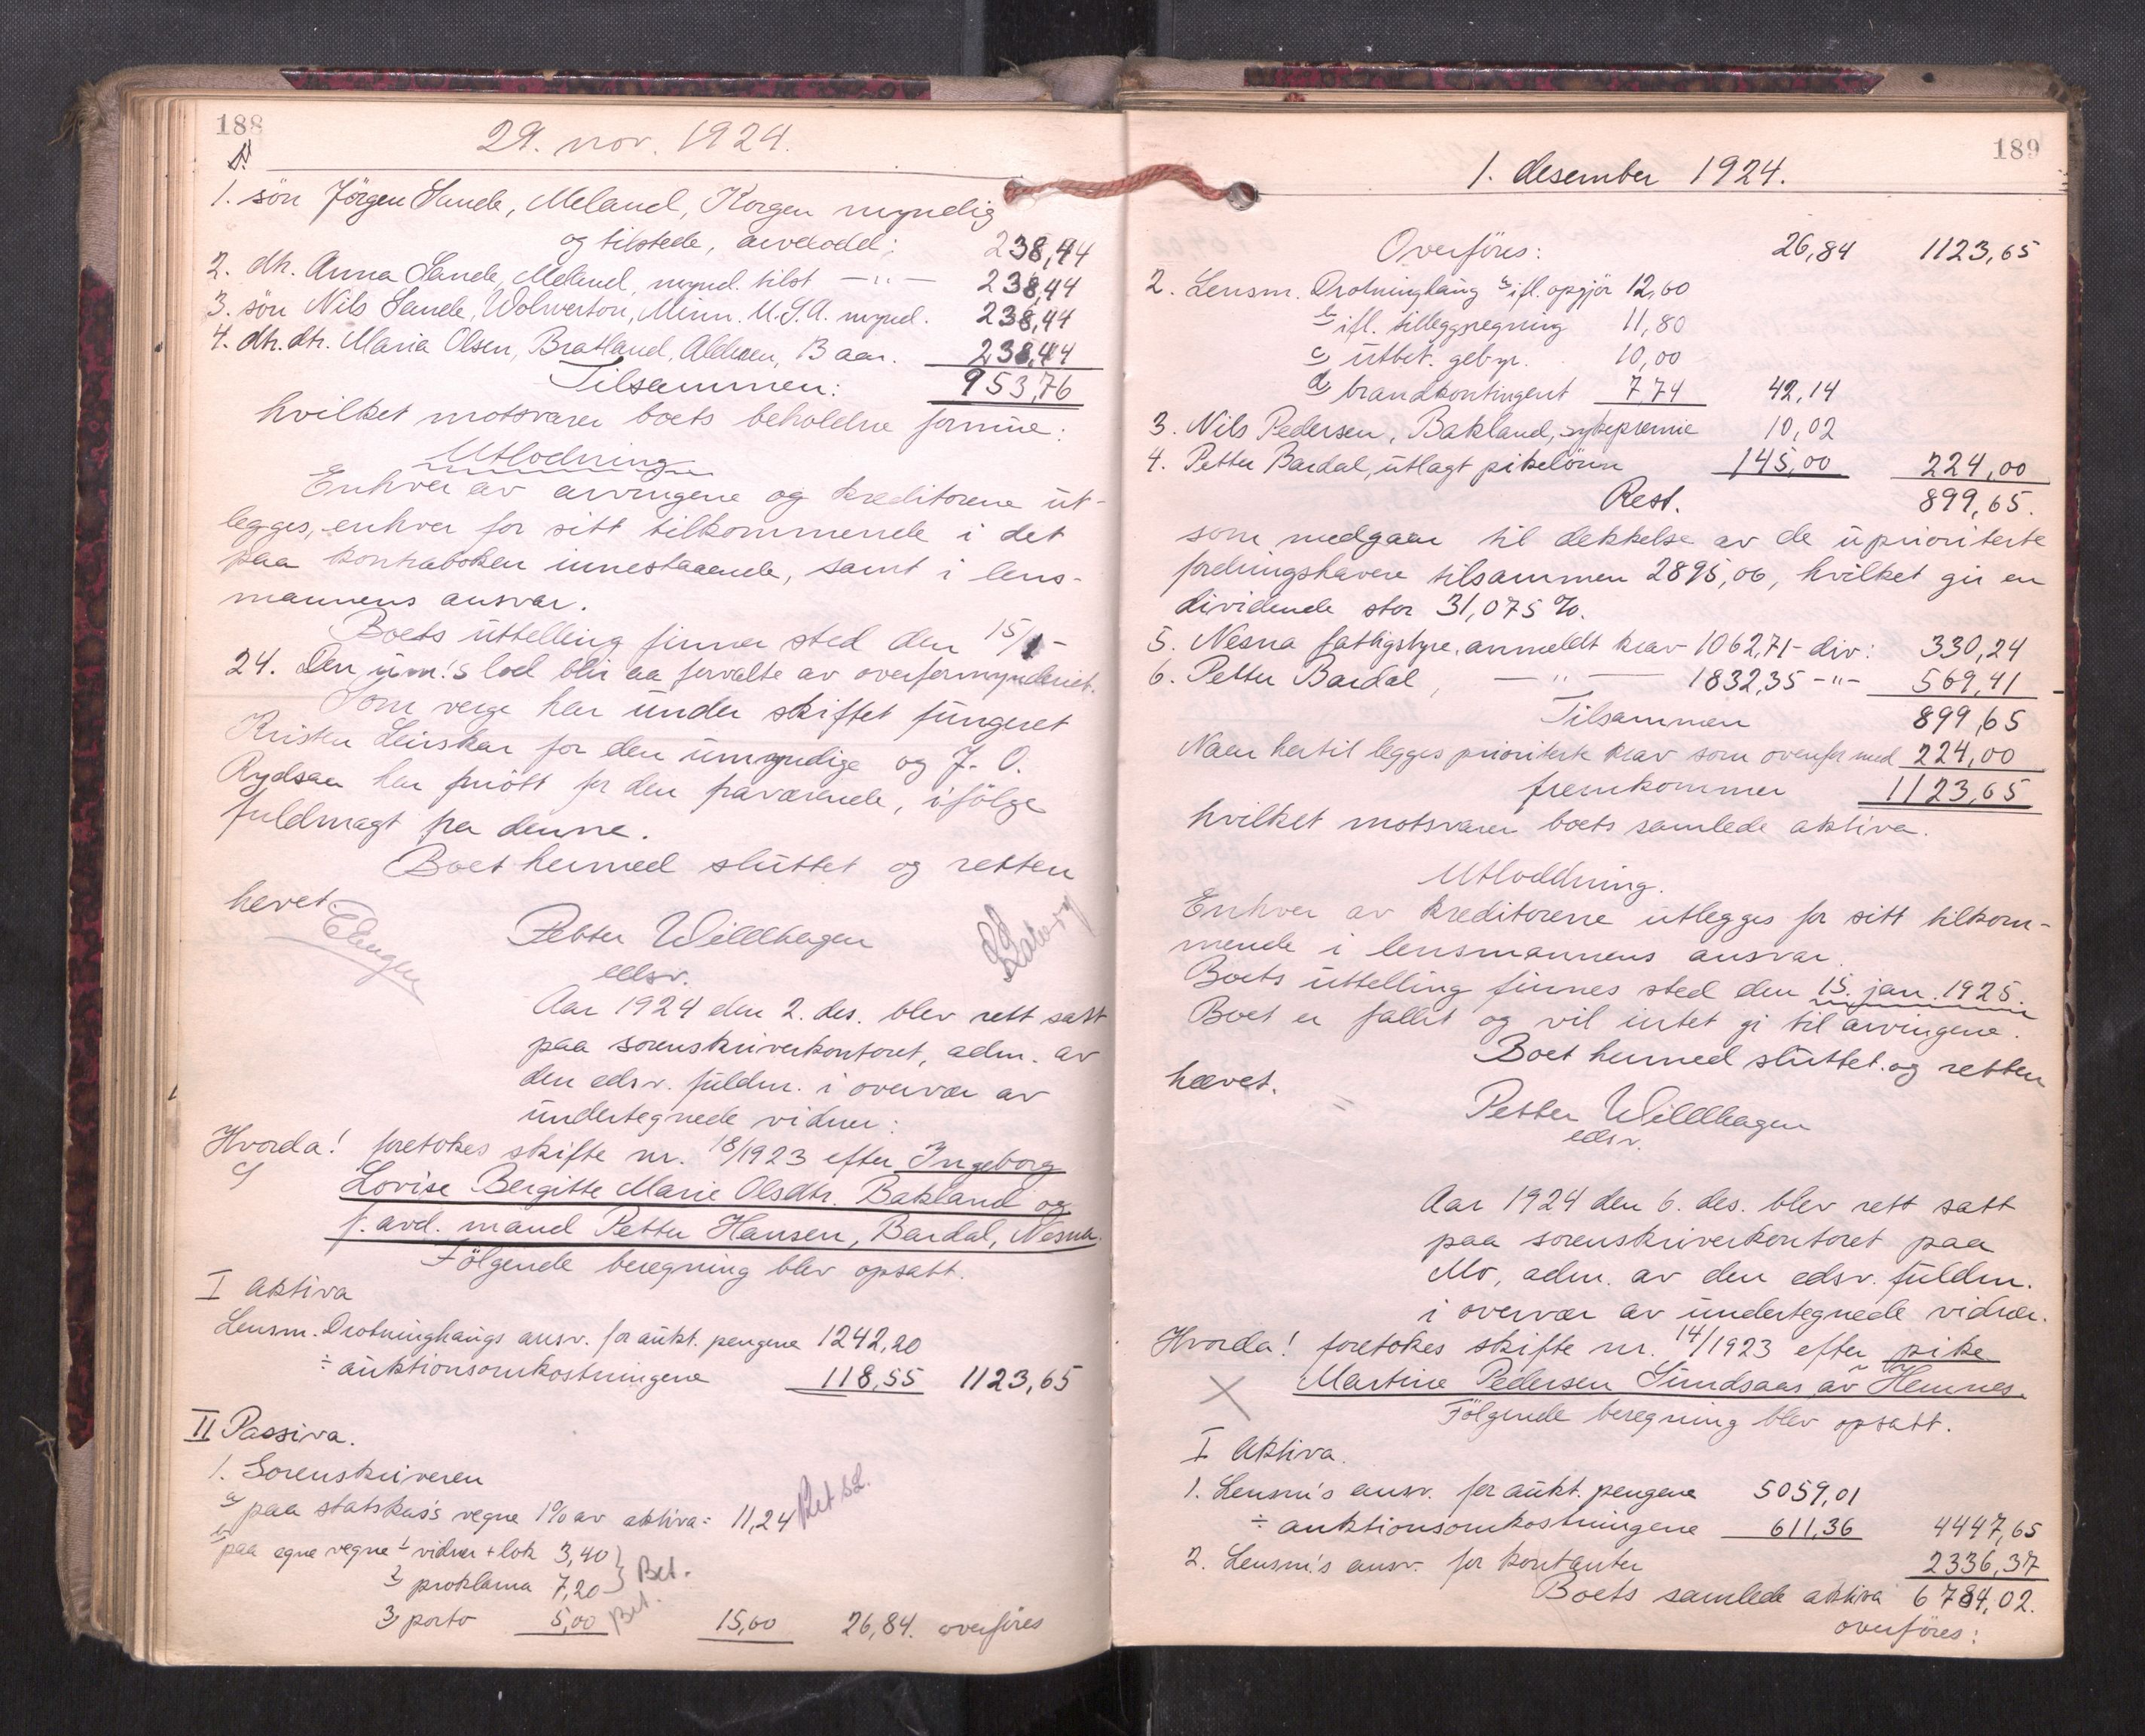 188
29. nov. 1924.
1. sön Jörgen Sande, Meland, Korgen myndig
og tilstede, arvelodd: 238,44
2. dtr. Anna Sande, Meland, mynd. tilst — " — 238,44
3. sön Nils Sande, Wolverton, Minn. U.S.A. mynd. 238,44
4. dtr. dtr. Maria Olsen, Bratland, Aldersen, 13 aar. 238,44
Tilsammen: 953,76
hvilket motsvarer boets beholdne formue:
Utlodning
Enhver av arvingene og kreditorene ut-
legges, enhver for sitt tilkommende i det
paa kontraboken innestaaende, samt i lens-
mannens ansvar.
Boets uttelling finner sted den 15/1-
24. Den um.'s lod blir aa forvalte av overformynderiet.
Som verge har under skiftet fungeret
Kristen Leirskar for den umyndige og J. O.
Rydsaa har
fuldmagt fra denne.
Boet hermed sluttet og retten
hevet.
Petter Willlhagen
edsv.
Aar 1924 den 2. des. blev rett satt
paa sorenskriverkontoret, adm. av
den edsv. fuldm. i overvær av
undertegnede vidner:
Hvorda! foretokes skifte nr. 18/1923 efter Ingeborg
Lovise Bergitte Marie Olsdtr. Bakland og
f. avd. mand Petter Hansen, Bardal, Nesna.
Følgende beregning blev opsatt.
I Aktiva
Lensm. Drotninghaugs ansv. for aukt. pengene 1242,20
÷ auktionsomkostningene 118,55 1123,65
II Passiva.
1. Sorenskriveren
a) paa statskas's vegne 1% av aktiva = 11,24 Bet
b) paa egne vegne 1) vidner + lok 3,40
2) proklama 7,20 } Bet.
3) porto 5,00 Bet. 15,60 26,84. overføres
189
1. desember 1924.
Overføres: 26,84 1123,65
2. Lensm. Drotninghaug a) ifl. opgjør 12,60
b) ifl. tilleggsregning 11,80
c) utbet. gebyr. 10,00
d) brandkontingent 7,74 42,14
3. Nils Pedersen, Bakland, sykepremie 10,02
4. Petter Bardal, utlagt pikelönn 145,00 224,00
Rest. 899,65.
som medgaar til dekkelse av de uprioriterte
fordringshavere tilsammen 2895,06, hvilket gir en
dividende stor 31,075 %.
5. Nesna fattigstyre, anmeldt krav - 1062,71 - div: 330,24
6. Petter Bardal, — " — 1832,35 - " - 569,41
Tilsammen 899,65
Naar hertil legges prioriterte krav som ovenfor med 224,00
fremkommer 1123,65
hvilket motsvarer boets samlede aktiva.
Utloddning.
Enhver av kreditorene utlegges for sitt tilkom-
mende i lensmannens ansvar.
Boets uttelling finnes sted den 15. jan. 1925.
Boet er fallit og vil intet gi til arvingene.
Boet hermed sluttet og retten
hævet.
Petter Willlhagen
edsv.
Aar 1924 den 6. des. blev rett satt
paa sorenskriverkontoret paa
Mo, adm. av den edsv. fuldm.
i overvær av undertegnede vidner.
Hvorda! foretokes skifte nr. 14/1923 efter pike
Martine Pedersen Sundsaas av Hemnes.
Følgende beregning blev opsatt.
I Aktiva.
1. Lensm's ansv. for aukt. pengene 5059,01
÷ auktionsomkostningene 611,36 4447,65
2. Lensm's ansv. for kontanter 2336,37
Boets samlede aktiva 6784,02.
overføres: